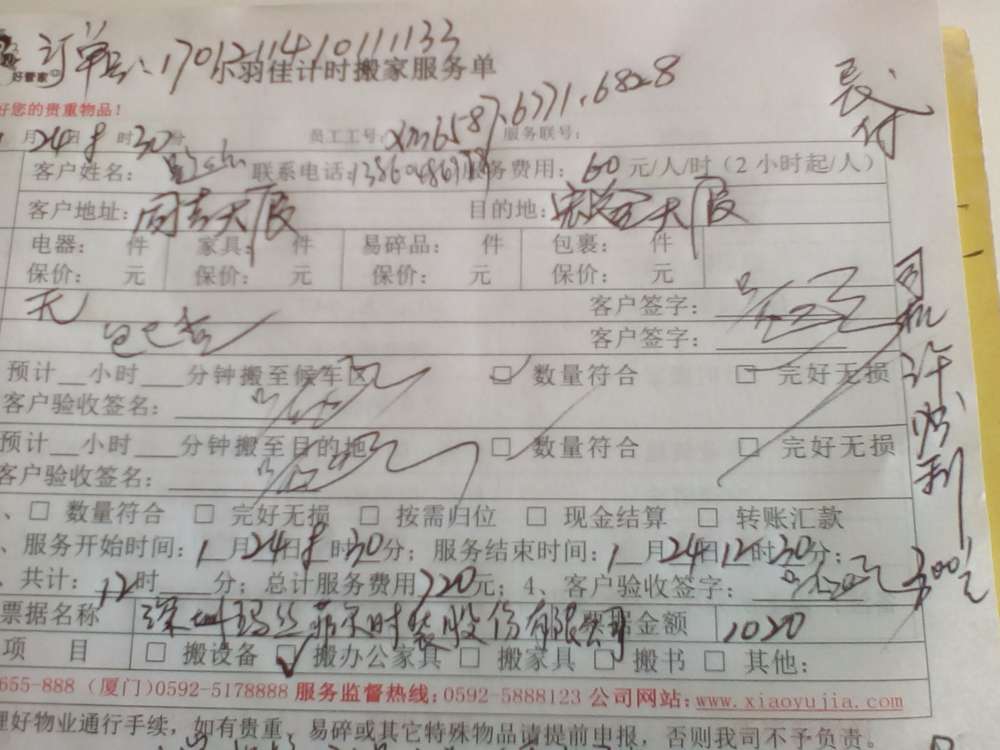 订单号:1701211410111133
好管家
小羽佳计时搬家服务单
好您的贵重物品!
月24日8时30分 员工工号:xm6587、6771、6828 服务联号:
客户姓名: 联系电话: 服务费用:60元/人/时(2小时起/人)
客户地址: 大厦 目的地: 大厦
电器: 件 家具: 件 易碎品: 件 包裹: 件
保价: 元 保价: 元 保价: 元 保价: 元
无 客户签字:
客户签字:
预计__小时___分钟搬至候车区 数量符合 □ 完好无损
客户验收签名:
预计__小时___分钟搬至目的地 □ 数量符合 □ 完好无损
客户验收签名:
、□ 数量符合 □ 完好无损 □ 按需归位 □ 现金结算 □ 转账汇款
、服务开始时间:1月24日8时30分;服务结束时间:1月24日12时30分;
、共计:12时 分;总计服务费用720元;4、客户验收签字:
票据名称 深圳玛丝菲尔时装股份有限公司 金额 1020
项 目 □ 搬设备 搬办公家具 □ 搬家具 □ 搬书 □ 其他:
655-888 (厦门)0592-5178888 服务监督热线:0592-5888123 公司网站:www.xiaoyujia.com
理好物业通行手续,如有贵重、易碎或其它特殊物品请提前申报,否则我司不予负责。
付
司机许 300元